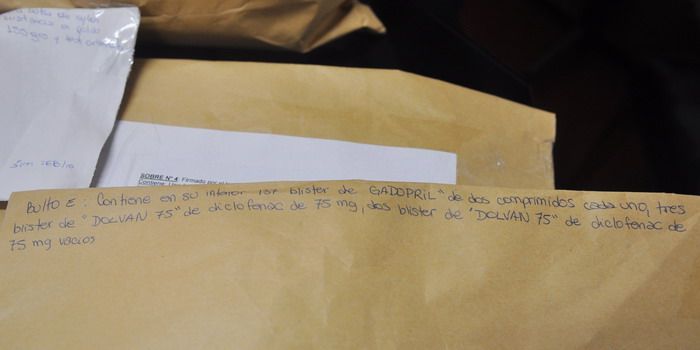 155 grs y
SOBRE Nº 4: Firmado por
Contiene:
Bulto E: Contiene en su interior 157 blister de GADOPRIL" de dos comprimidos cada uno, tres
blister de "DOLVAN 75" de diclofenac de 75 mg, dos blister de "DOLVAN 75" de diclofenac de
75 mg vacios